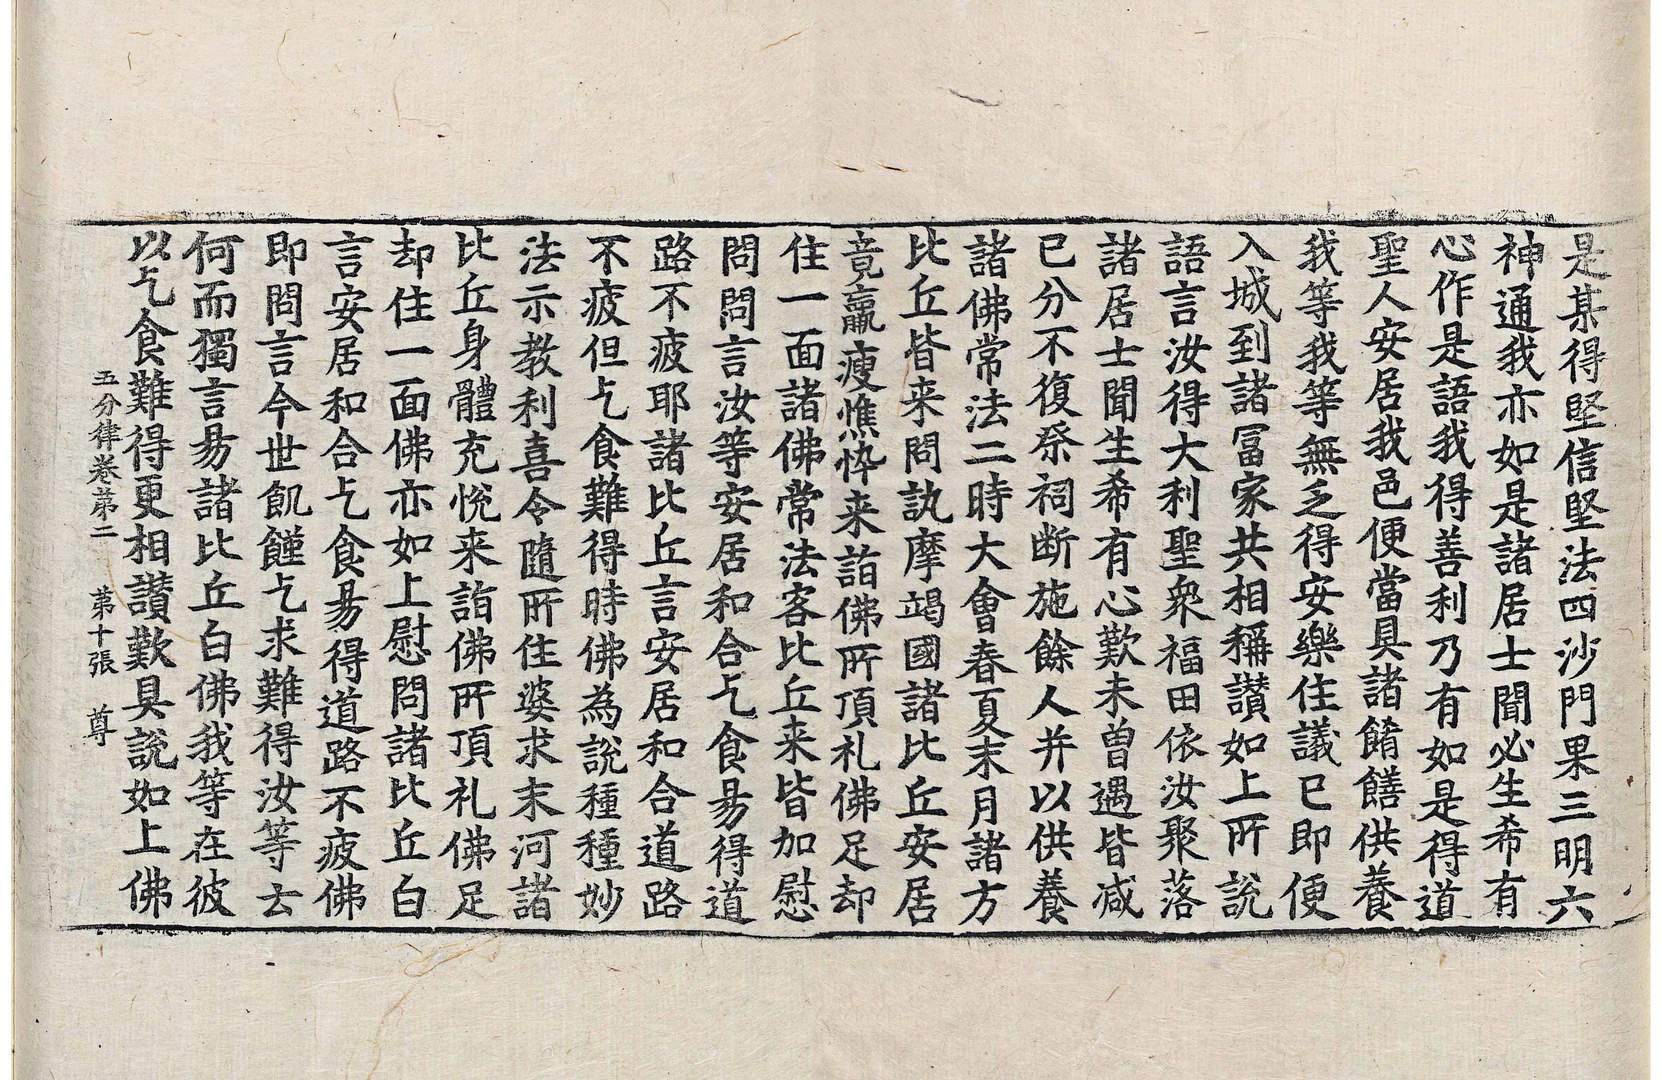 是某得堅信堅法四沙門果三明六
神通我亦如是諸居士聞必生希有
心作是語我得善利乃有如是得道
聖人安居我邑便當具諸餚饍供養
我等我等無乏得安樂住議已即便
入城到諸冨家共相稱讃如上所說
語言汝得大利聖衆福田依汝聚落
諸居士聞生希有心歎未曽遇皆減
已分不復祭祠断施餘人并以供養
諸佛常法二時大會春夏末月諸方
比丘皆来問訊摩竭國諸比丘安居
竟羸瘦憔悴来詣佛所頂礼佛足却
住一面諸佛常法客比丘来皆加慰
問問言汝等安居和合乞食易得道
路不疲耶諸比丘言安居和合道路
不疲但乞食難得時佛為說種種妙
法示教利喜令隨所住婆求末河諸
比丘身體充恱来詣佛所頂礼佛足
却住一面佛亦如上慰問諸比丘白
言安居和合乞食易得道路不疲佛
即問言今世飢饉乞求難得汝等云
何而獨言易諸比丘白佛我等在彼
以乞食難得更相讃歎具說如上佛
五分律卷苐二 苐十張 尊